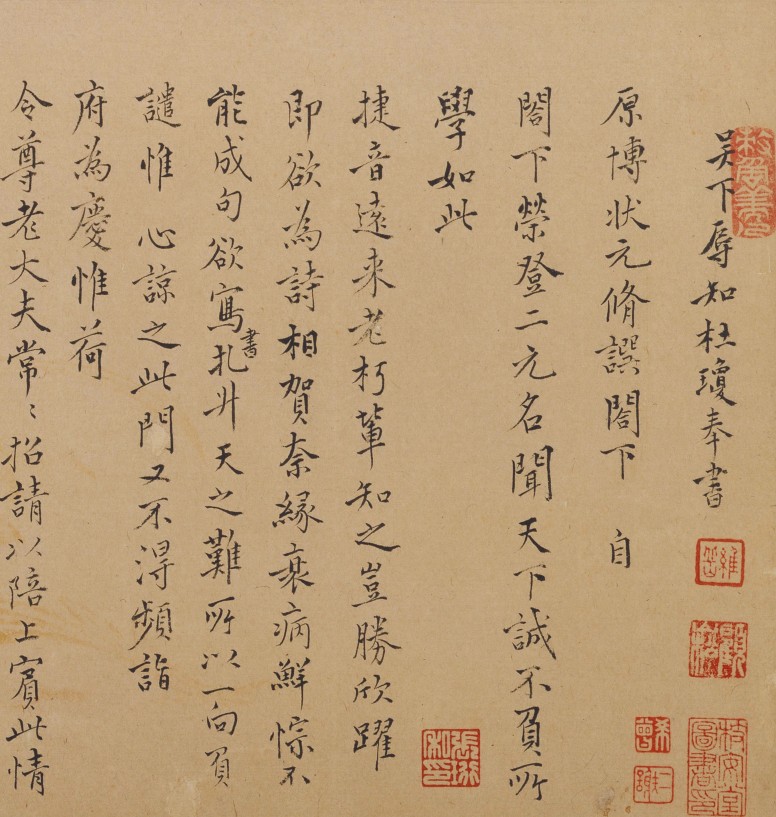 吳下辱知杜瓊奉書
原博狀元脩譔閤下 自
閤下榮登二元名聞天下誠不負所
學如此
捷音遠来老朽輩知之豈勝欣躍
即欲為詩相賀柰緣衰病鮮悰不
能成句欲寫書扎升天之難所以一向負
譴惟 心諒之此門又不得頻詣
府為慶惟荷
令尊老大夫常〻招請以陪上賓此情